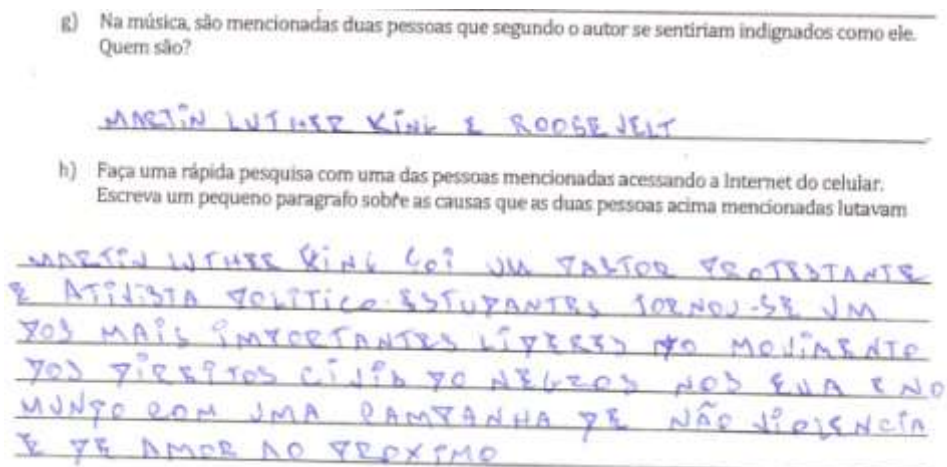 g) Na música, são mencionadas duas pessoas que segundo o autor se sentiriam indignados como ele.
Quem são?
MARTIN LUTHER KING E ROOSEVELT
h) Faça uma rápida pesquisa com uma das pessoas mencionadas acessando a Internet do celular.
Escreva um pequeno paragrafo sobre as causas que as duas pessoas acima mencionadas lutavam
MARTIN LUTHER KING FOI UM PASTOR PROTESTANTE
E ATIVISTA POLITICO ESTUDANTES TORNOU-SE UM
DOS MAIS IMPORTANTES LIDERES DO MOVIMENTO
DOS DIREITOS CIVIS DO NEGROS NOS EUA E NO
MUNDO COM UMA CAMPANHA DE NÃO VIOLENCIA
E DE AMOR AO PROXIMO